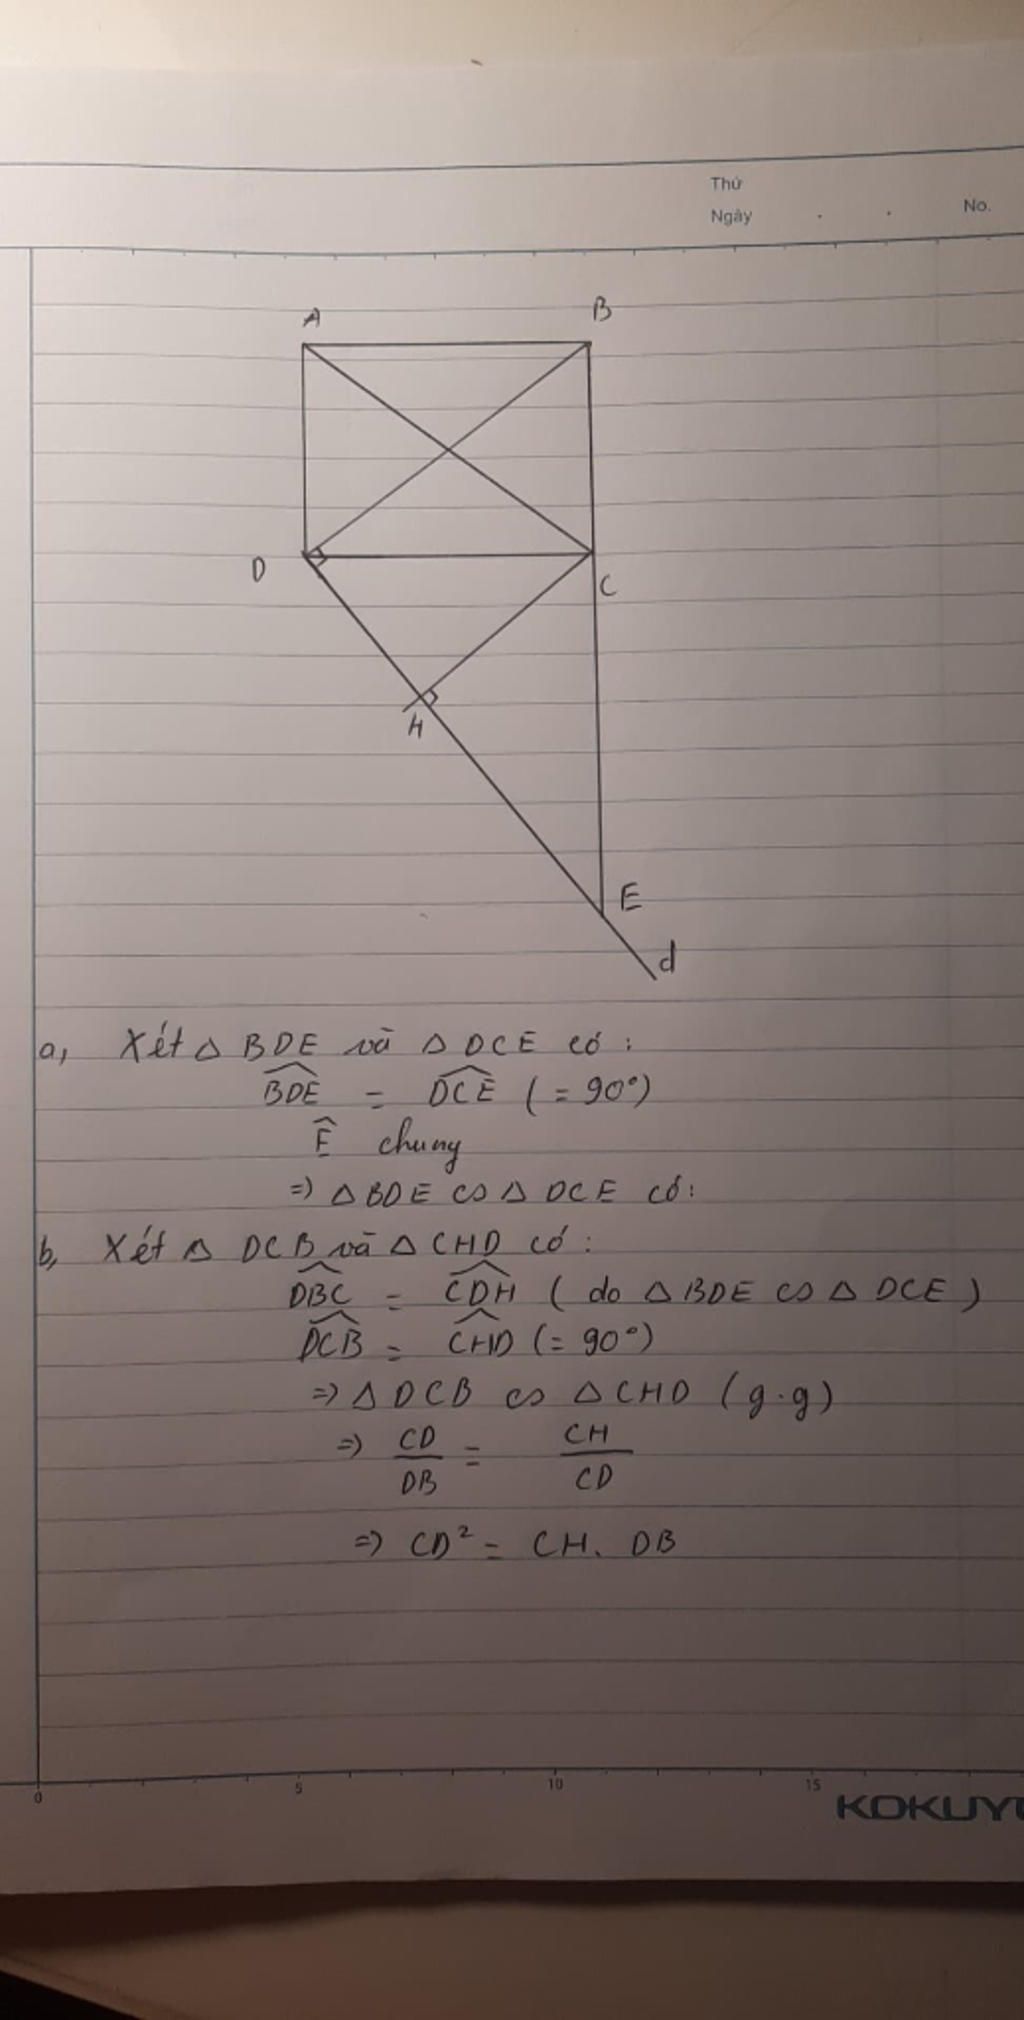 Thứ
Ngày . . No.
A B
D C
H
E
d
a, Xét △ BDE và △ DCE có :
BDE = DCE ( = 90°)
Ê chung
=> △ BDE ∽ △ DCE có:
b, Xét △ DCB và △ CHD có :
DBC = CDH ( do △ BDE ∽ △ DCE )
DCB = CHD (= 90°)
=> △ DCB ∽ △ CHD (g.g)
=> CD/DB = CH/CD
=> CD² = CH. DB
0 5 10 15
KOKUY